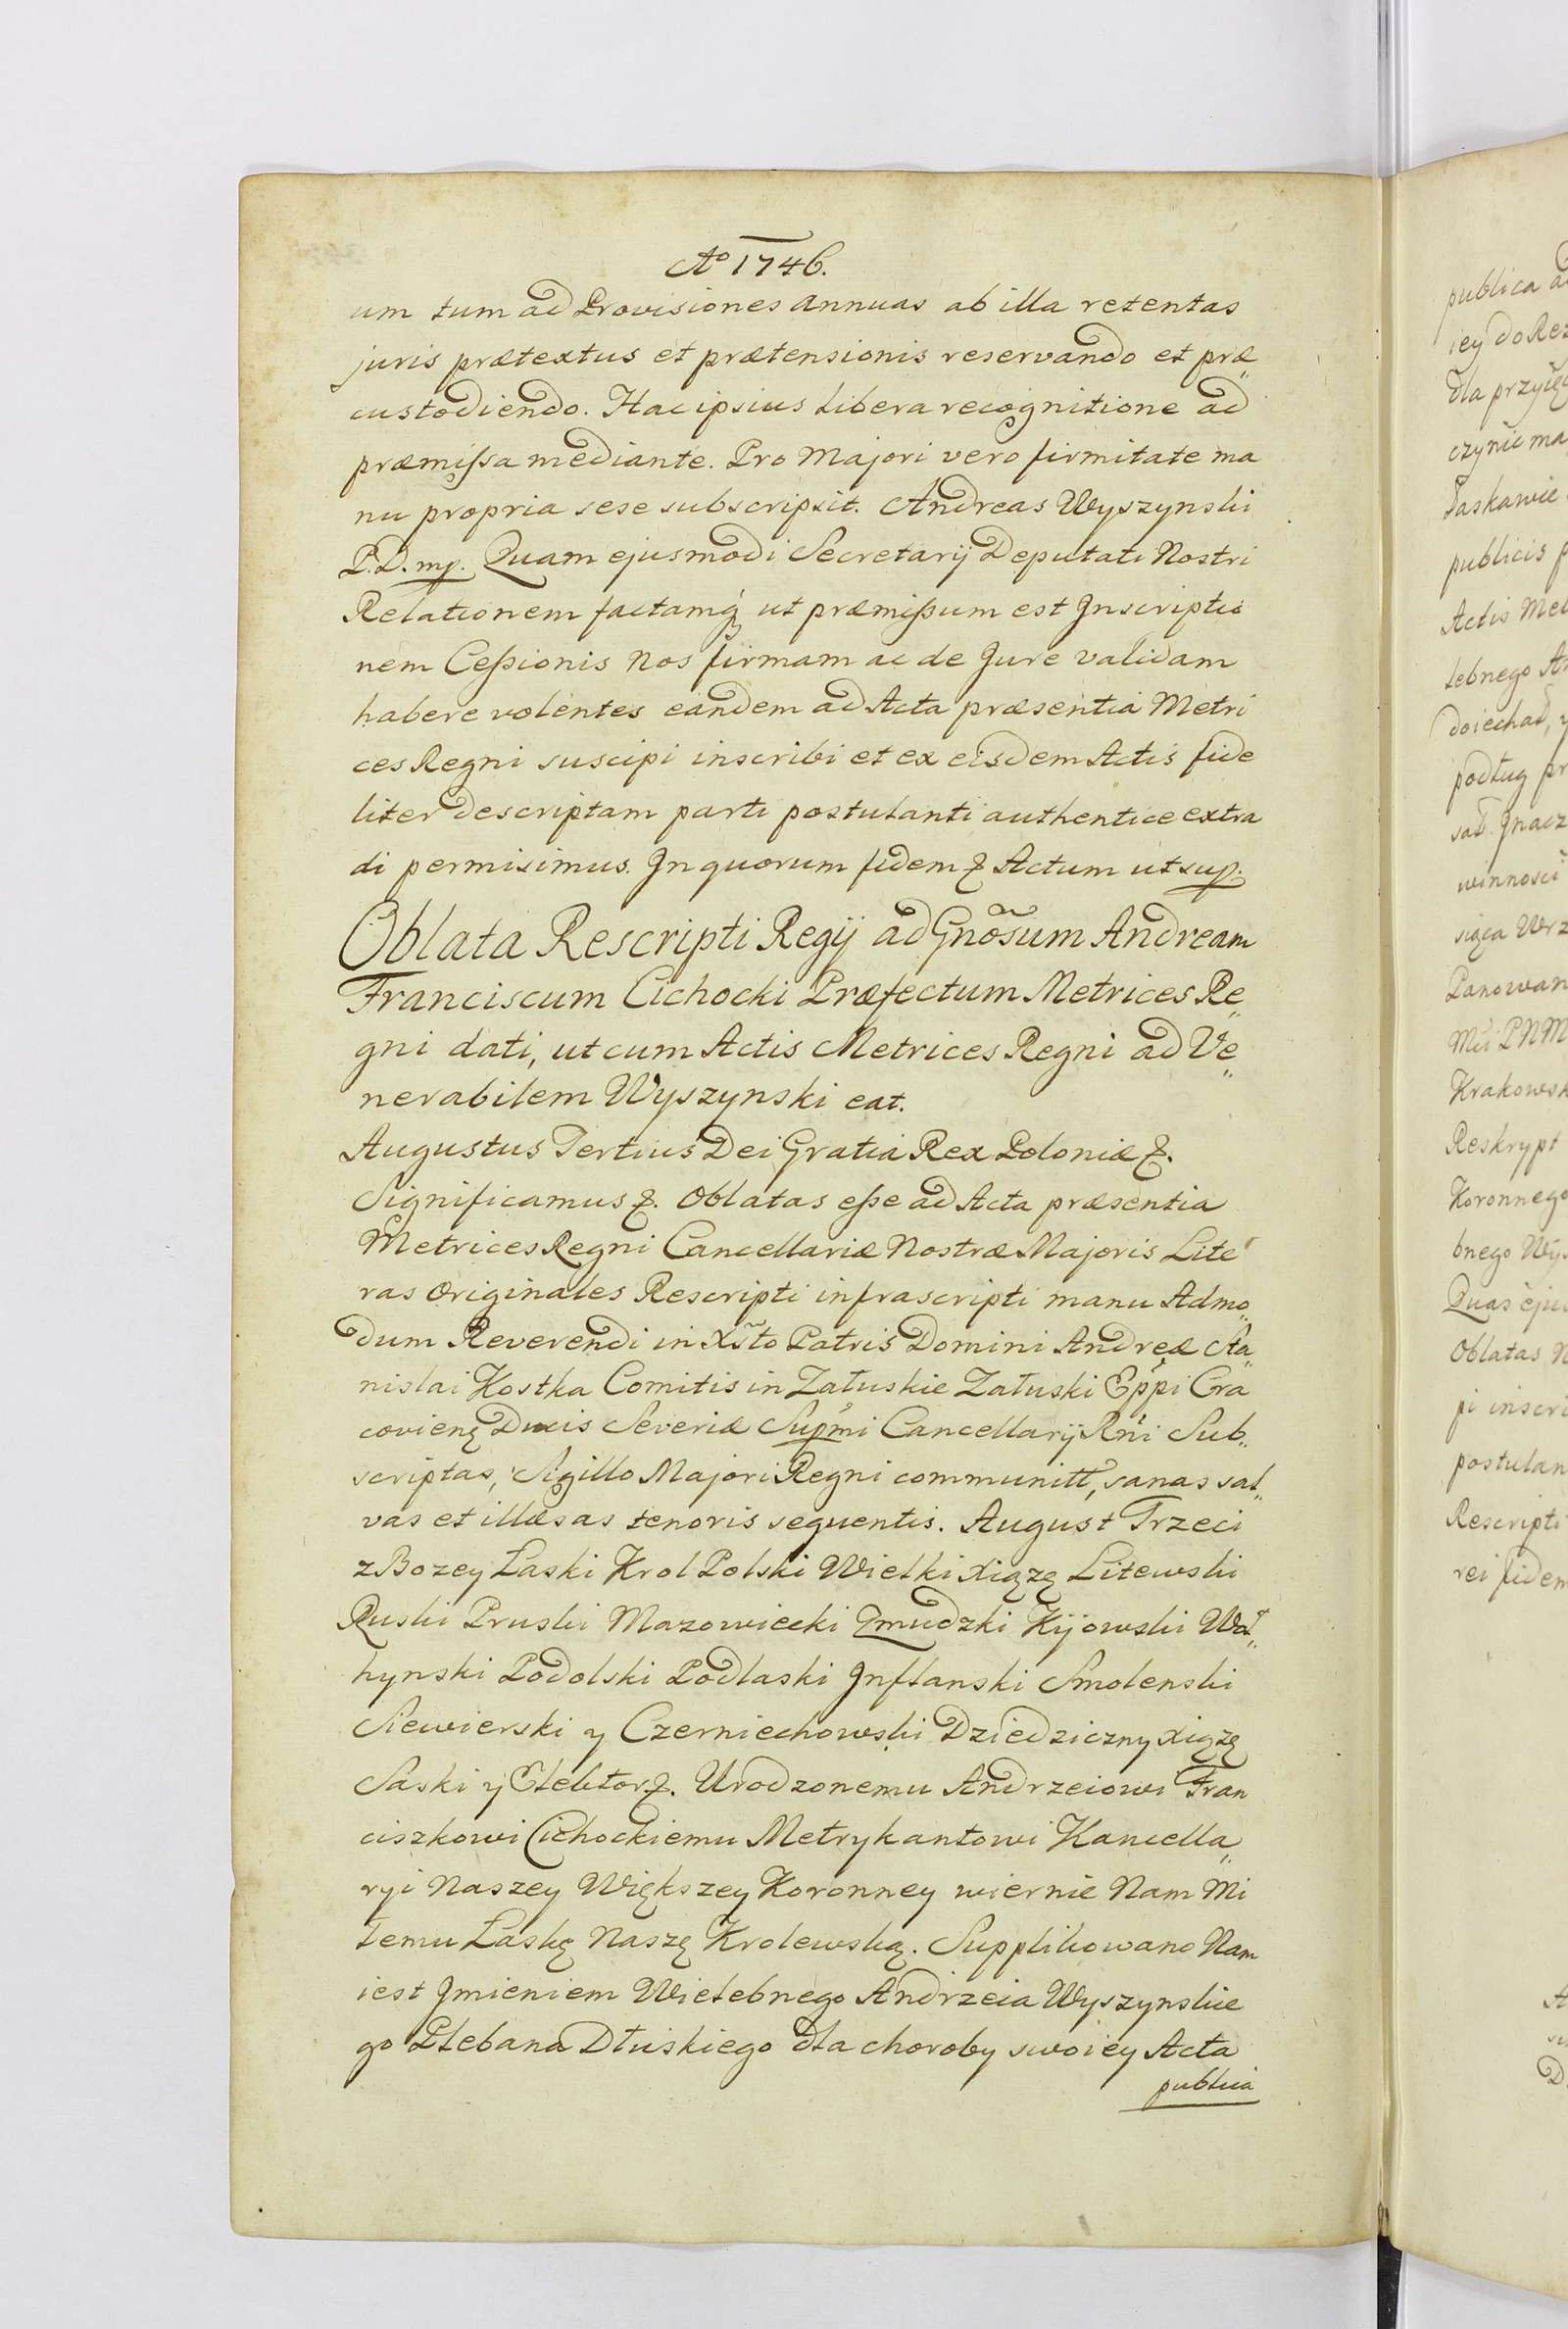 Ao 1746.
um tum ad Provisiones annuas ab illa retentas
juris prætextus et prætensionis reservando et præ„
custodiendo. Hac ipsius libera recognitione ad
præmissa mediante. Pro Majori vero firmitate ma
nu propria sese subscripsit. Andreas Wyszynski
P.D. mp. Quam ejusmodi Secretarij Deputati Nostri
Relationem factamq́ ut præmissum est Inscriptio
nem Cessionis Nos firmam ac de Jure validam
habere volentes eandem ad Acta præsentia Metri
ces Regni suscipi inscribi et ex eisdem Actis fide
liter descriptam parti postulanti authentice extra
di permisimus. In quorum fidem &. Actum ut sup.
Oblata Rescripti Regij ad Gnõsum Andream
Franciscum Cichocki Præfectum Metrices Re„
gni dati, ut cum Actis Metrices Regni ad Ve„
nerabilem Wyszynski eat.
Augustus Tertius Dei Gratia Rex Poloniæ &.
Significamus &. Oblatas esse ad Acta præsentia
Metrices Regni Cancellariæ Nostræ Majoris Lite
ras Originales Rescripti infrascripti manu Admo„
dum Reverendi in Xsto Patris Domini Andreæ Sta„
nislai Kostka Comitis in Załuskie Załuski Eppi Cra
covien Ducis Severiæ Supmi Cancellarij Rni Sub„
scriptas, Sigillo Majori Regni communitt, sanas sal„
vas et illæsas tenoris sequentis. August Trzeci
z Bozey Łaski Krol Polski Wielki Xiążę Litewski
Ruski Pruski Mazowiecki Zmudzki Kijowski Woł„
hynski Podolski Podlaski Inflanski Smolenski
Siewierski y Czerniechowski Dziedziczny Xiążę
Saski y Elektor &. Urodzonemu Andrzeiowi Fran
ciszkowi Cichockiemu Metrykantowi Kancella„
ryi Naszey Większey Koronney wiernie Nam Mi
łemu Łaskę Naszę Krolewską. Supplikowano Nam
iest Imieniem Wielebnego Andrzeia Wyszynskie
go Plebana Dłuskiego dla choroby swoiey Acta
publica
publica
iey do Rez
dla przyięc
czynic ma
Łaskawie
publicis
Actis Met
lebnego An
doiechał,
podług pr
sał. Inacz
winnosci
siąca Wrz
Panowan
Krakowsk
Reskrypt
Koronnego
bnego Wys
Quas ejus
Oblatas
pi inscri
postulan
Rescripti
rei fidem